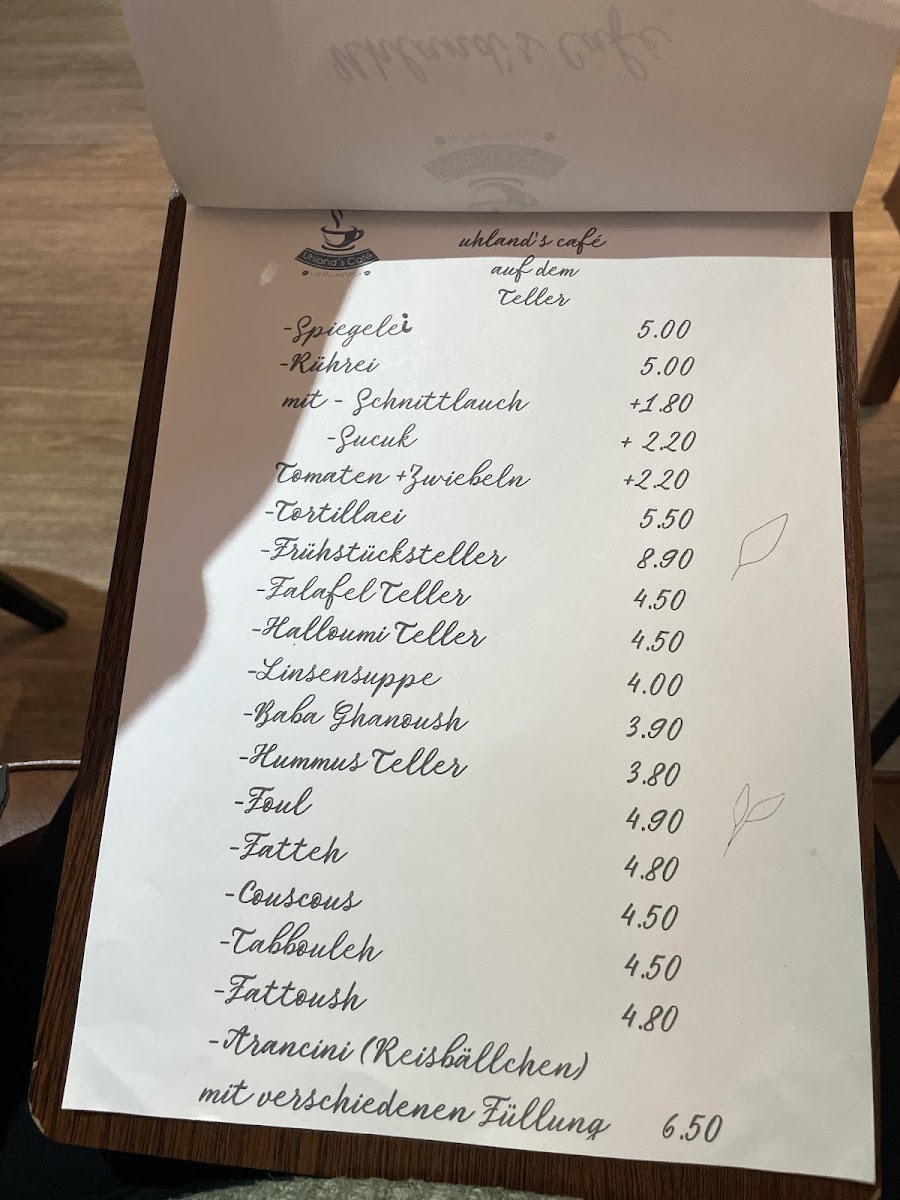 Uhland's Café
Uhland's Café
Uhland's Café
uhland's café
auf dem
Teller
-Spiegelei 5.00
-Rührei 5.00
mit - Schnittlauch +1.80
-Sucuk + 2.20
Tomaten +Zwiebeln +2.20
-Tortillaei 5.50
-Frühstücksteller 8.90
-Falafel Teller 4.50
-Halloumi Teller 4.50
-Linsensuppe 4.00
-Baba Ghanoush 3.90
-Hummus Teller 3.80
-Foul 4.90
-Fatteh 4.80
-Couscous 4.50
-Tabbouleh 4.50
-Fattoush 4.80
-Arancini (Reisbällchen)
mit verschiedenen Füllung 6.50